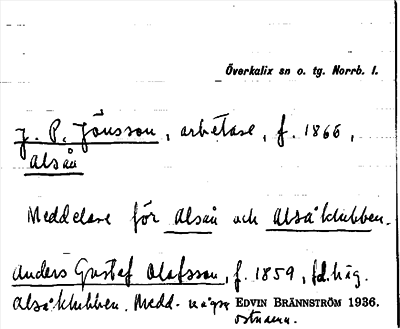 Överkalix sn o. tg. Norrb. l.
J. P. Jönsson, arbetare, f. 1866,
Alsån
Meddelare för Alsån och Alsåklubben.
Anders Gustaf Olofsson, f. 1859, f.d. häg.
Alsåklubben. Medd. EDVIN BRÄNNSTRÖM 1936.